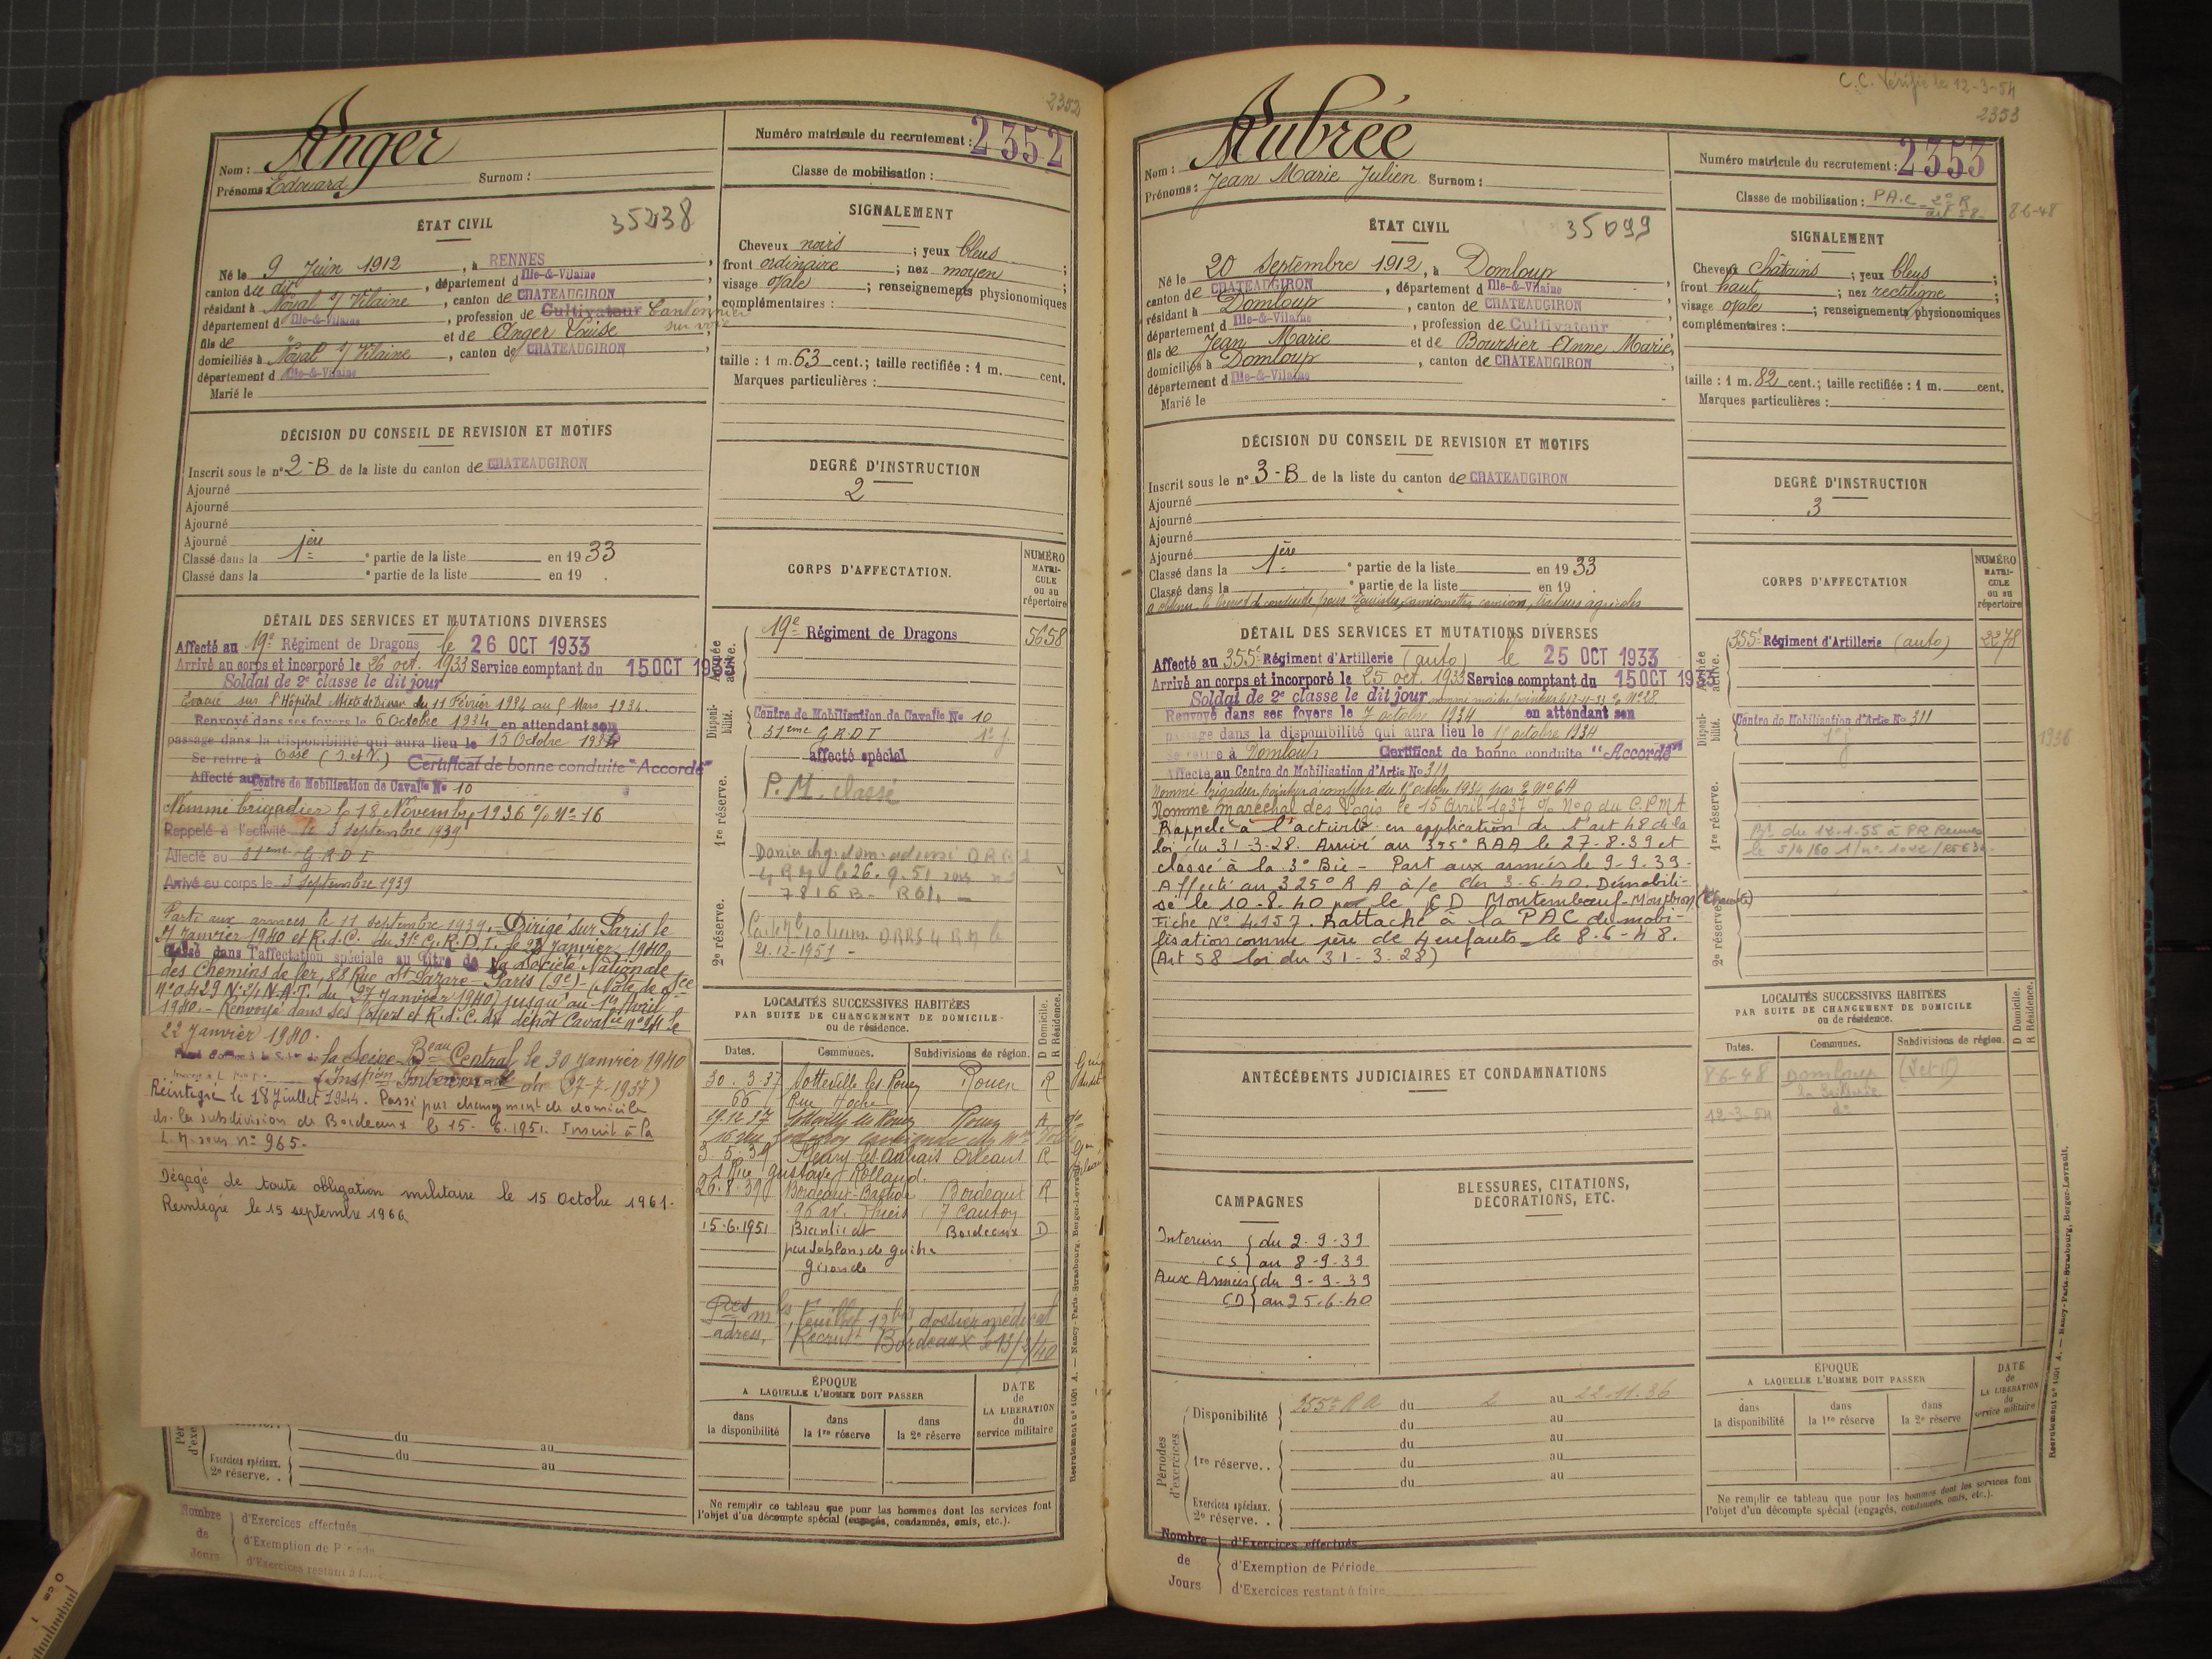 2352
Nom : Anger
Prénoms : Edouard Surnom :
Numéro matricule du recrutement : 2352
Classe de mobilisation :
ÉTAT CIVIL 35238
Né le 9 Juin 1912, à RENNES,
canton du dit, département d Ille-&-Vilaine
résidant à Noyal s/ Vilaine, canton de CHATEAUGIRON,
département d Ille-&-Vilaine, profession de Cultivateur Cantonnier
sur voie
fils de " et de Anger Louise
domiciliés à Noyal s/ Vilaine, canton de CHATEAUGIRON,
département d Ille-&-Vilaine
Marié le
SIGNALEMENT
Cheveux noirs ; yeux bleus ;
front ordinaire ; nez moyen ;
visage ovale ; renseignements physionomiques
complémentaires :
taille : 1 m. 63 cent.; taille rectifiée : 1 m. cent.
Marques particulières :
DÉCISION DU CONSEIL DE REVISION ET MOTIFS
Inscrit sous le n° 2-B de la liste du canton de CHATEAUGIRON
Ajourné
Ajourné
Ajourné
Ajourné
Classé dans la 1ère partie de la liste en 1933
Classé dans la partie de la liste en 19 .
DEGRÉ D'INSTRUCTION
2
DÉTAIL DES SERVICES ET MUTATIONS DIVERSES
Affecté au 19e Régiment de Dragons le 26 OCT 1933
Arrivé au corps et incorporé le 26 oct. 1933 Service comptant du 15 OCT 1933
Soldat de 2e classe le dit jour
Evacué sur l'Hôpital Mixte de Dinan du 11 Février 1934 au Mars 1934.
Renvoyé dans ses foyers le 6 Octobre 1934 en attendant son
passage dans la disponibilité qui aura lieu le 15 Octobre 1934
Se retire à Ossé (I.et V.) Certificat de bonne conduite "Accordé"
Affecté au Centre de Mobilisation de Cavalie No 10
Nommé brigadier le 18 Novembre 1936 O/ No 16
Rappelé à l'activité le 3 septembre 1939
Affecté au 31eme G.R.D.I
Arrivé au corps le 3 septembre 1939
Parti aux armées le 11 septembre 1939. Dirigé sur Paris le
Janvier 1940 et R.d.C. du 31e G.R.D.I. le Janvier 1940
classé dans l'affectation spéciale au titre de la Société Nationale
des Chemins de fer, 88 Rue St Lazare - Paris (9e) - (Note de Sce
No 0429 N.2/1 N.A.T. du 27 Janvier 1940) jusqu'au 1er Avril
1940. - Renvoyé dans ses foyers et R.d.C. du dépôt Cavalie No le
22 Janvier 1940.
la Seine Beau Central le 30 Janvier 1940
(27-7-1937)
Réintégré le 18 Juillet 1944. Passé par changement de domicile
ds la subdivision de Bordeaux le 15-6.1951. Inscrit à la
L.M. sous no 965.
Dégagé de toute obligation militaire le 15 Octobre 1961.
Réintégré le 15 septembre 1966
CORPS D'AFFECTATION.
NUMÉRO MATRICULE ou au répertoire
Armée active.
19e Régiment de Dragons 5658
Disponibilité.
Centre de Mobilisation de Cavalie No 10
31eme G.R.D.I
affecté spécial
1re réserve.
P.M. classé
2e réserve.
7816 B-
21-12-1951 -
LOCALITÉS SUCCESSIVES HABITÉES
PAR SUITE DE CHANGEMENT DE DOMICILE
ou de résidence.
D Domicile.
R Résidence.
Dates. Communes. Subdivisions de région.
30.3.37 Sotteville les Rouen Rouen R
66 Rue Hoche
19.12.37 Sotteville les Rouen Rouen
3.5.39 Fleury les Aubrais Orléans R
1 Rue Gustave Rolland.
26.8.39 Bordeaux-Bastide Bordeaux R
96 av. Thiers 7 canton
15-6.1951 Bordeaux D
par Sablons de Guitre
Gironde
feuillet, 12 bis, dossier médical
adress. Recrutt Bordeaux le 13/2/40
ÉPOQUE
A LAQUELLE L'HOMME DOIT PASSER
DATE
de
LA LIBERATION
du
service militaire
dans la disponibilité
dans la 1re réserve
dans la 2e réserve
Ne remplir ce tableau que pour les hommes dont les services font
l'objet d'un décompte spécial (engagés, condamnés, omis, etc.).
du au
du au
Exercices spéciaux.
2e réserve. .
Nombre de Jours
d'Exercices effectués
d'Exemption de Période
d'Exercices restant à faire
Recrutement n° 1001 A. — Nancy-Paris-Strasbourg, Berger-Levrault.
C.C. Vérifié le 12-3-54
2353
Nom : Aubrée
Prénoms : Jean Marie Julien Surnom :
Numéro matricule du recrutement : 2353
Classe de mobilisation : PAC - 2e R
art 58 - 8-6-48
ÉTAT CIVIL 35099
Né le 20 Septembre 1912, à Domloup
canton de CHATEAUGIRON, département d Ille-&-Vilaine
résidant à Domloup, canton de CHATEAUGIRON,
département d Ille-&-Vilaine, profession de Cultivateur
fils de Jean Marie et de Boursier Anne Marie,
domiciliés à Domloup, canton de CHATEAUGIRON,
département d Ille-&-Vilaine
Marié le
SIGNALEMENT
Cheveux châtains ; yeux bleus ;
front haut ; nez rectiligne ;
visage ovale ; renseignements physionomiques
complémentaires :
taille : 1 m. 82 cent.; taille rectifiée : 1 m. cent.
Marques particulières :
DÉCISION DU CONSEIL DE REVISION ET MOTIFS
Inscrit sous le n° 3-B de la liste du canton de CHATEAUGIRON
Ajourné
Ajourné
Ajourné
Ajourné
Classé dans la 1ère partie de la liste en 1933
Classé dans la partie de la liste en 19
a obtenu le brevet de conduite pour camionnettes camions, tracteurs agricoles
DEGRÉ D'INSTRUCTION
3
DÉTAIL DES SERVICES ET MUTATIONS DIVERSES
Affecté au 355e Régiment d'Artillerie (auto) le 25 OCT 1933
Arrivé au corps et incorporé le 25 oct. 1933 Service comptant du 15 OCT 1933
Soldat de 2e classe le dit jour
Renvoyé dans ses foyers le 7 octobre 1934 en attendant son
passage dans la disponibilité qui aura lieu le octobre 1934
Se retire à Domloup Certificat de bonne conduite "Accordé"
Affecté au Centre de Mobilisation d'Artie No 311
Nommé brigadier pointeur à compter du octobre 1934 par O No 64
Nommé maréchal des Logis le 15 Avril 1937 O/ No 9 du C.P.M.A
Rappelé à l'activité en application de l'art 48 de la
loi du 31-3-28. Arrivé au 355° RAA le 27-8-39 et
classé à la 3° Bie - Part aux armées le 9-9-39-
Affecté au 325° R A à/c du 3-6-40. Démobili-
sé le 10-8-40 par le CD Montembœuf-Montbron (Charente)
Fiche No 4157. Rattaché à la PAC de mobi-
lisation comme père de 4 enfants le 8-6-48.
(Art 58 loi du 31-3-28)
CORPS D'AFFECTATION
NUMÉRO MATRICULE ou au répertoire
Armée active.
355e Régiment d'Artillerie (auto) 2278
Disponibilité.
Centre de Mobilisation d'Artie No 311
1936
1re réserve.
Bt du 12-1-55 à PR Rennes
2e réserve.
ANTÉCÉDENTS JUDICIAIRES ET CONDAMNATIONS
LOCALITÉS SUCCESSIVES HABITÉES
PAR SUITE DE CHANGEMENT DE DOMICILE
ou de résidence.
D Domicile.
R Résidence.
Dates. Communes. Subdivisions de région.
8-6-48 Domloup (I et V)
12-3-54 do
CAMPAGNES
Interieur du 2-9-39
CS au 8-9-39
Aux Armées du 9-9-39
CD au 25-6-40
BLESSURES, CITATIONS,
DÉCORATIONS, ETC.
Périodes d'exercices.
Disponibilité 355e RA du 2 au 22-11-36
du au
1re réserve. . du au
du au
du au
Exercices spéciaux.
2e réserve. .
ÉPOQUE
A LAQUELLE L'HOMME DOIT PASSER
DATE
de
LA LIBERATION
du
service militaire
dans la disponibilité
dans la 1re réserve
dans la 2e réserve
Ne remplir ce tableau que pour les hommes dont les services font
l'objet d'un décompte spécial (engagés, condamnés, omis, etc.).
Nombre de Jours
d'Exercices effectués
d'Exemption de Période
d'Exercices restant à faire
Recrutement n° 1001 A. — Nancy-Paris-Strasbourg, Berger-Levrault.
0 cm 1